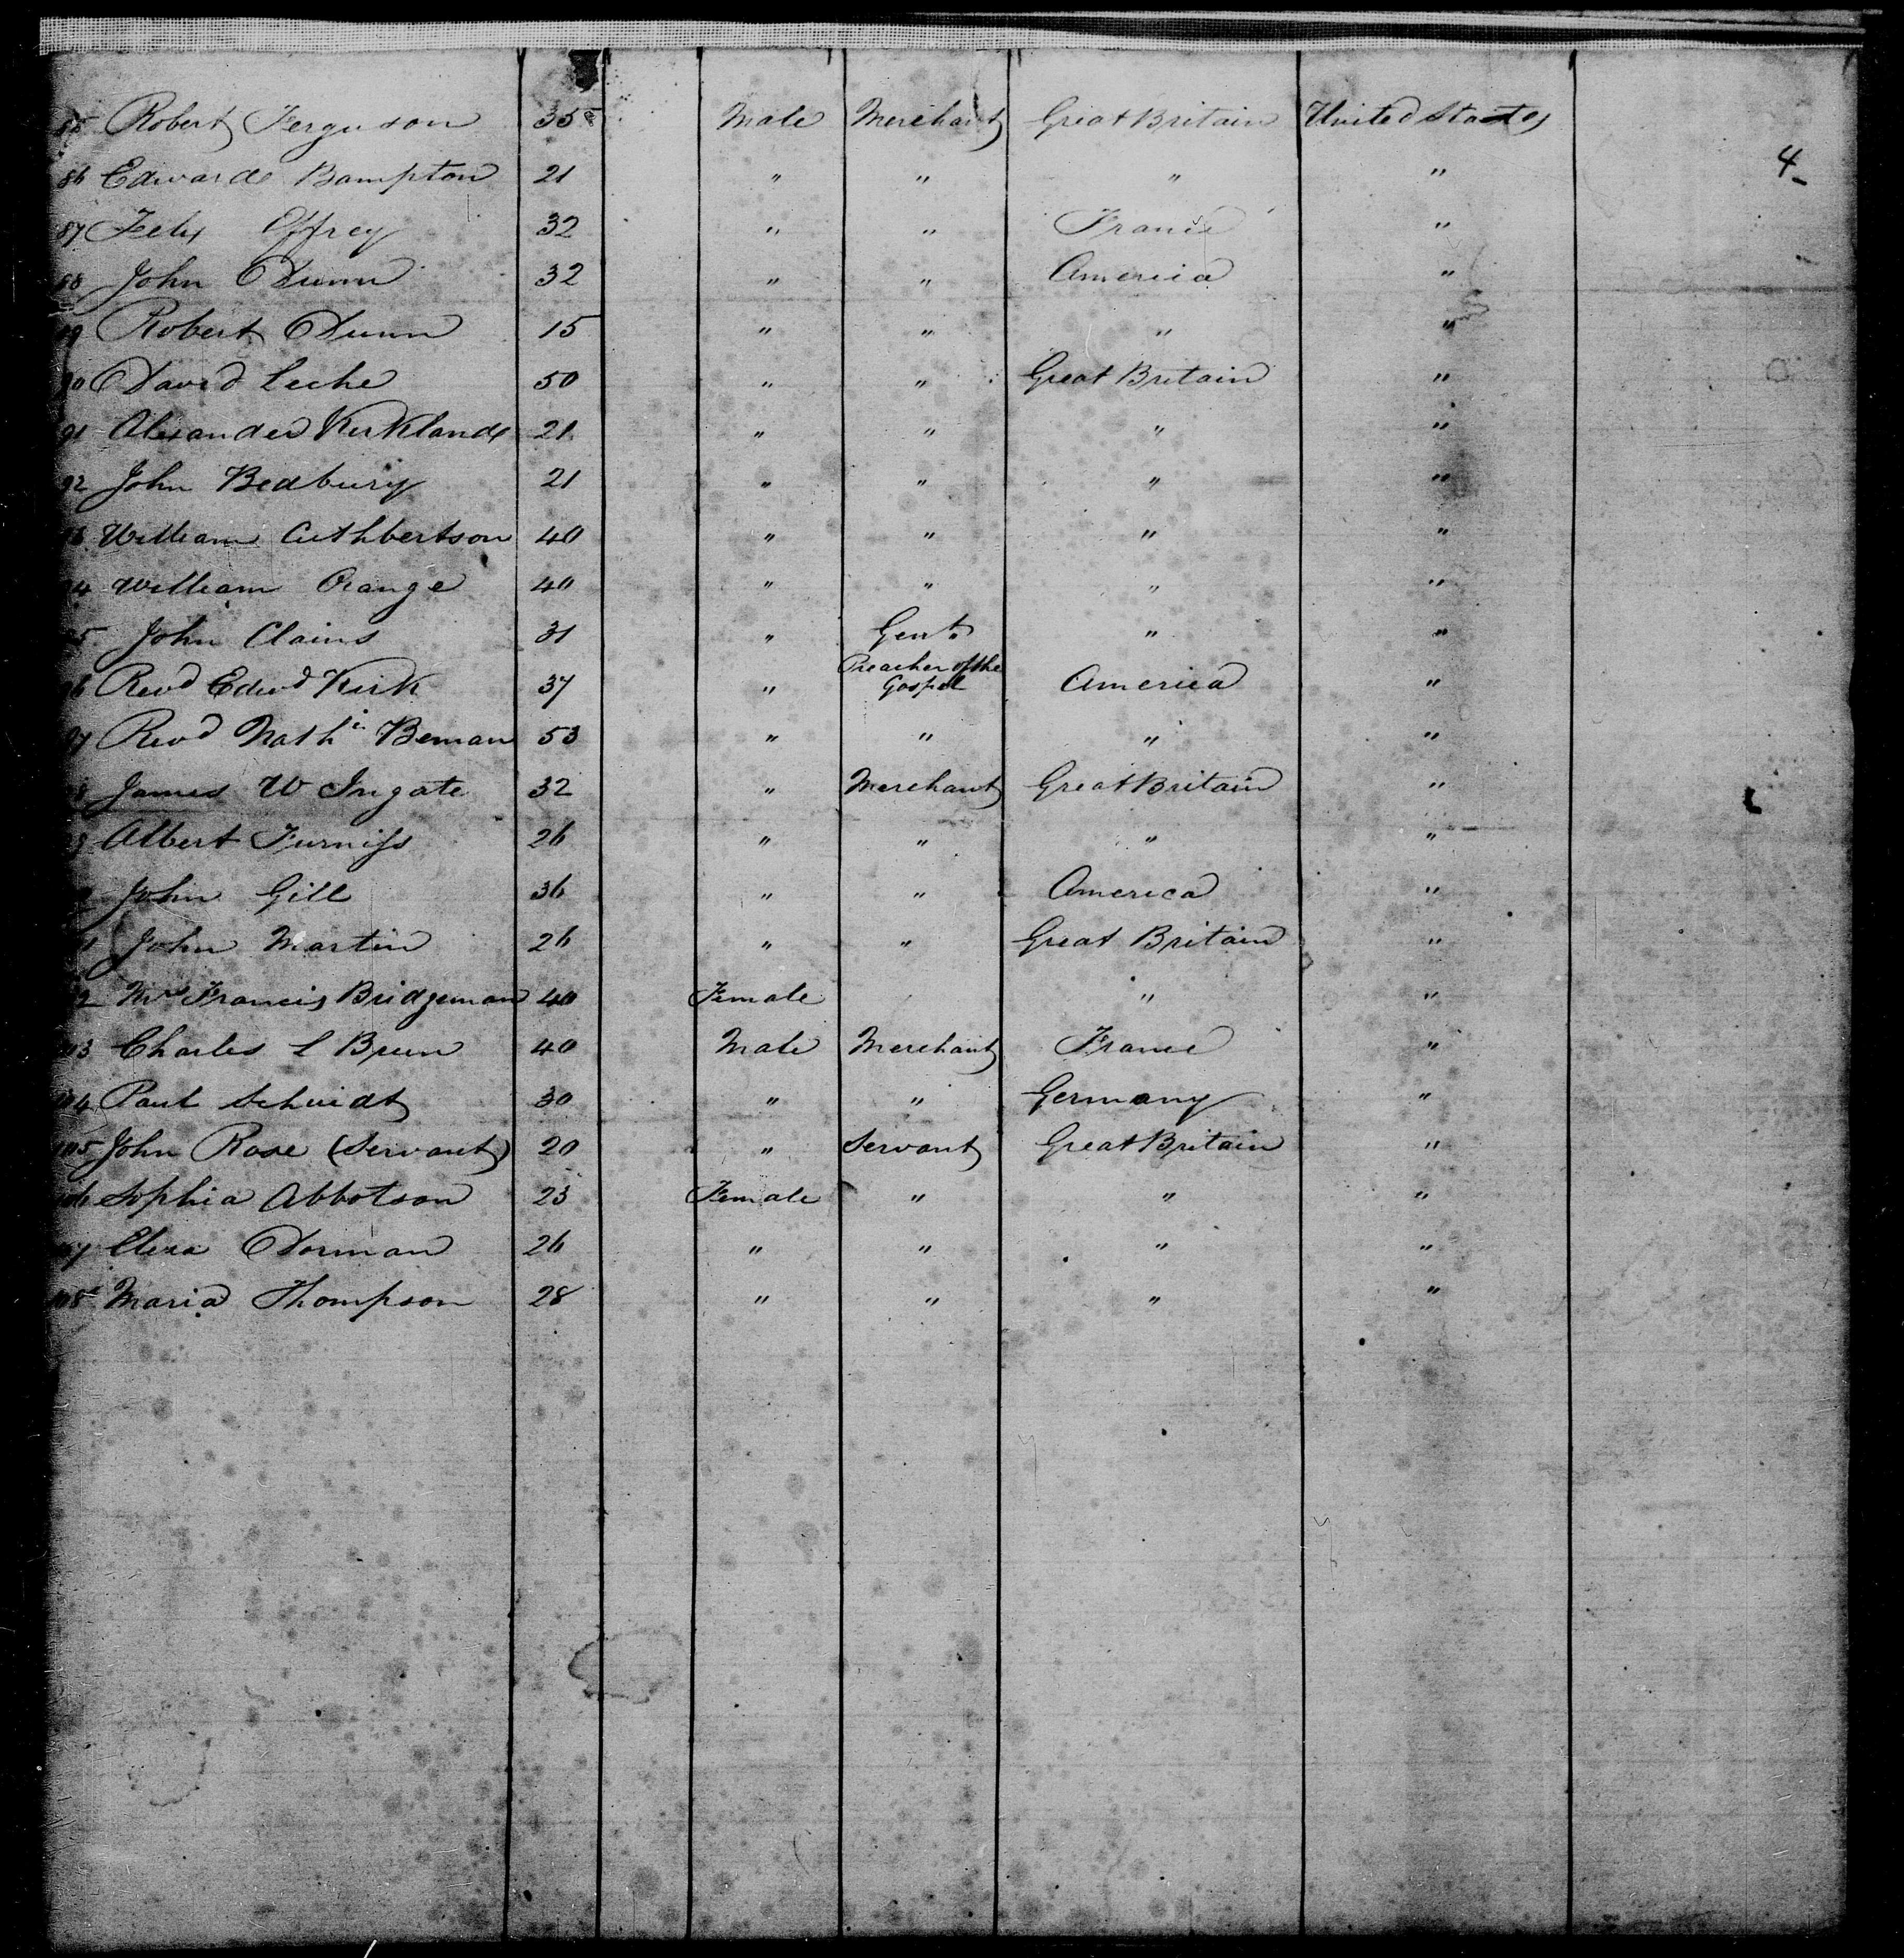 85 Robert Ferguson 35 Male Merchant Great Britain United States
4
86 Edward Bampton 21 " " " "
87 Felix Effrey 32 " " France "
88 John Dunn 32 " " America "
89 Robert Dunn 15 " " " "
90 David Leche 50 " " Great Britain "
91 Alexander Kirkland 21 " " " "
92 John Bedbury 21 " " " "
93 William Cuthbertson 40 " " " "
94 William Orange 40 " " " "
95 John Clains 31 " Gent " "
96 Revd Edwd Kirk 37 " Preacher of the Gospel America "
97 Revd Nathl Beman 53 " " " "
98 James W Ingate 32 " Merchant Great Britain "
99 Albert Furniss 26 " " " "
John Gill 36 " " America "
John Martin 26 " " Great Britain "
2 Mrs Francis Bridgeman 40 Female " "
103 Charles L Brun 40 Male Merchant France "
104 Paul Schmidt 30 " " Germany "
105 John Rose (Servant) 20 " Servant Great Britain "
106 Sophia Abbotson 23 Female " " "
107 Eliza Dorman 26 " " " "
108 Maria Thompson 28 " " " "